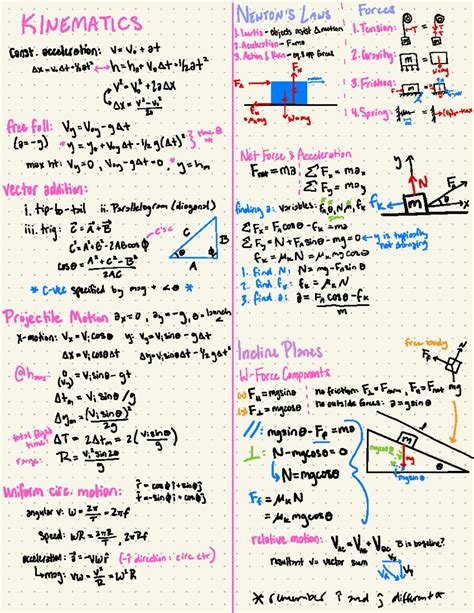 KINEMATICS
Const. acceleration: V = V₀ + at
Δx = v₀t + ½at² → h = h₀ + V₀t + ½at²
V² = V₀² + 2aΔx
Δx = V² - V₀² / 2a
free fall: Vy = V₀y - gΔt
(a = -g) *y = y₀ + V₀yΔt - ½g(Δt)²
max ht: Vy = 0, V₀y - gΔt = 0, y = hm
Vector addition:
i. tip-to-tail ii. Parallelogram (diagonal)
iii. trig: C = A + B
C² = A² + B² - 2ABcosθ
cosθ = A² + C² - B² / 2AC
C
B
A
θ
* C-vec specified by mag + <θ *
Projectile Motion ax = 0, ay = -g, θ = launch
x-motion: Vx = Vi cosθ y: Vy = Vi sinθ - gΔt
Δx = Vi cosθΔt Δy = Vi sinθΔt - ½gΔt²
@hmax: Vi sinθ - gt
Δtm = Vi sinθ / g
Δym = (Vi sinθ)² / 2g
total flight time: ΔT = 2Δtm = 2(Vi sinθ / g)
range: R = Vi² sin2θ / g
Uniform circ. motion: r̂ = cosφî + sinφĵ
φ̂ = -sinφî + cosφĵ
angular v: W = 2π/T = 2πf
Speed: WR = 2πR/T = 2πRf
acceleration: a = -VWr̂ (-r̂ direction: circ ctr)
↳ mag: VW = V²/R = W²R
NEWTON'S LAWS
1. Inertia - objects resist Δmotion
2. Acceleration - F = ma
3. Action & Rxn
Forces
1. Tension:
2. Gravity:
3. Friction:
4. Spring:
Net Force & Acceleration
Fnet = ma ΣFx = max
ΣFy = may
finding a: variables:
ΣFx = FA cosθ - fk = max
ΣFy = N + FA sinθ - mg = 0 ← y is typically not changing
fk = μkN = μk mg cosθ
1. find N: N = mg - F sinθ
2. find fk: fk = μkN
3. find a: a = FA cosθ - fk / m
y
x
N
F
θ
m
Incline Planes
W-Force Components
(x) F∥ = mg sinθ
(y) F⊥ = mg cosθ
no outside forces: a = g sinθ
free body
//: mg sinθ - Ff = ma
⊥: N - mg cosθ = 0
N = mg cosθ
Ff = μkN
= μk mg cosθ
m
mg
mg sinθ
θ
relative motion: VAC = VAB + VBC B is baseline?
resultant v = vector sum
* remember î and ĵ different *